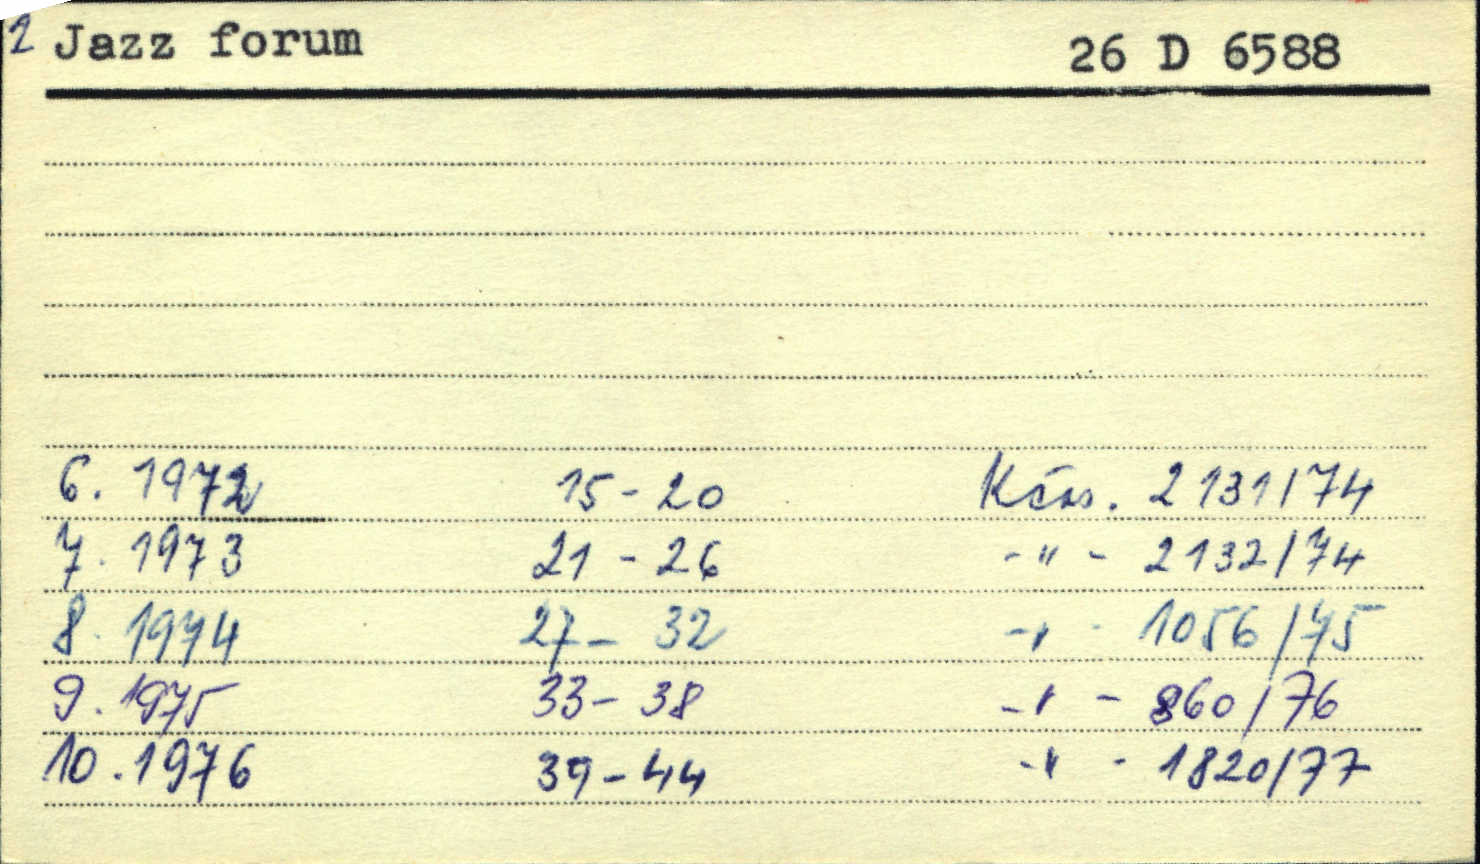 2 Jazz forum 26 D 6588
6. 1972 15-20 Kčas. 2131/74
7. 1973 21-26 -"- 2132/74
8. 1974 27-32 -"- 1056/75
9. 1975 33-38 -"- 860/76
10. 1976 39-44 -"- 1820/77